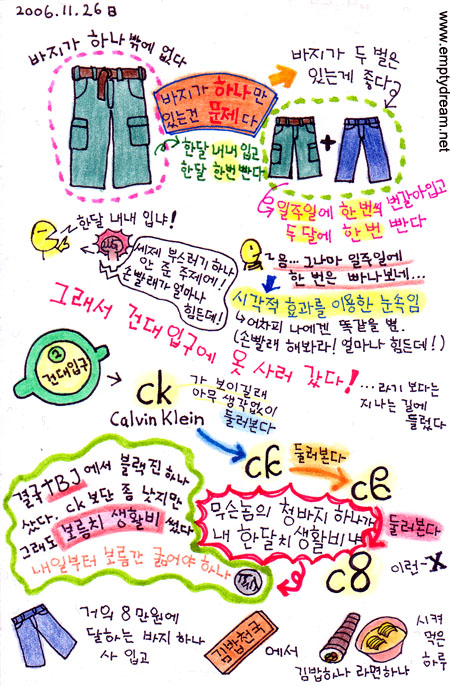 2006.11.26日
www.emptydream.net
바지가 하나 밖에 없다
바지가 하나만
있는건 문제다
바지가 두 벌은
있는게 좋다
한달 내내 입고
한달 한번 빤다
+
일주일에 한번씩 번갈아입고
두 달에 한 번 빤다
한달 내내 입냐!
세제 부스러기 하나
안 준 주제에!
손빨래가 얼마나
힘든데!
음... 그나마 일주일에
한 번은 빠나보네...
시각적 효과를 이용한 눈속임
어차피 나에겐 똑같을 뿐.
(손빨래 해봐라! 얼마나 힘든데!)
그래서 건대입구에 옷 사러 갔다!
...라기 보다는
지나는 길에
들렀다
②
건대입구
ck
Calvin Klein
가 보이길래
아무 생각없이
둘러본다
ck
둘러본다
ck
둘러본다
무슨놈의 청바지 하나가
내 한달치 생활비냐
c8
이런-X
결국 TBJ에서 블랙진 하나
샀다. ck 보단 좀 낫지만
그래도 보름치 생활비 썼다
내일부터 보름간 굶어야 하나
거의 8만원에
달하는 바지 하나
사 입고
김밥천국
에서
김밥하나 라면하나
시켜
먹은
하루